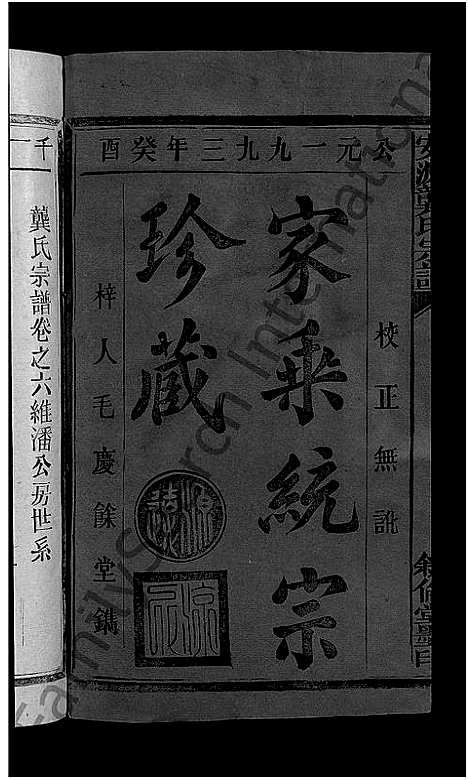 公元一九九三年癸酉
校正無訛
家乘統宗
珍藏
梓人毛慶餘堂鐫
龔氏宗譜卷之六維潘公房世系
千一
FamilySearch International